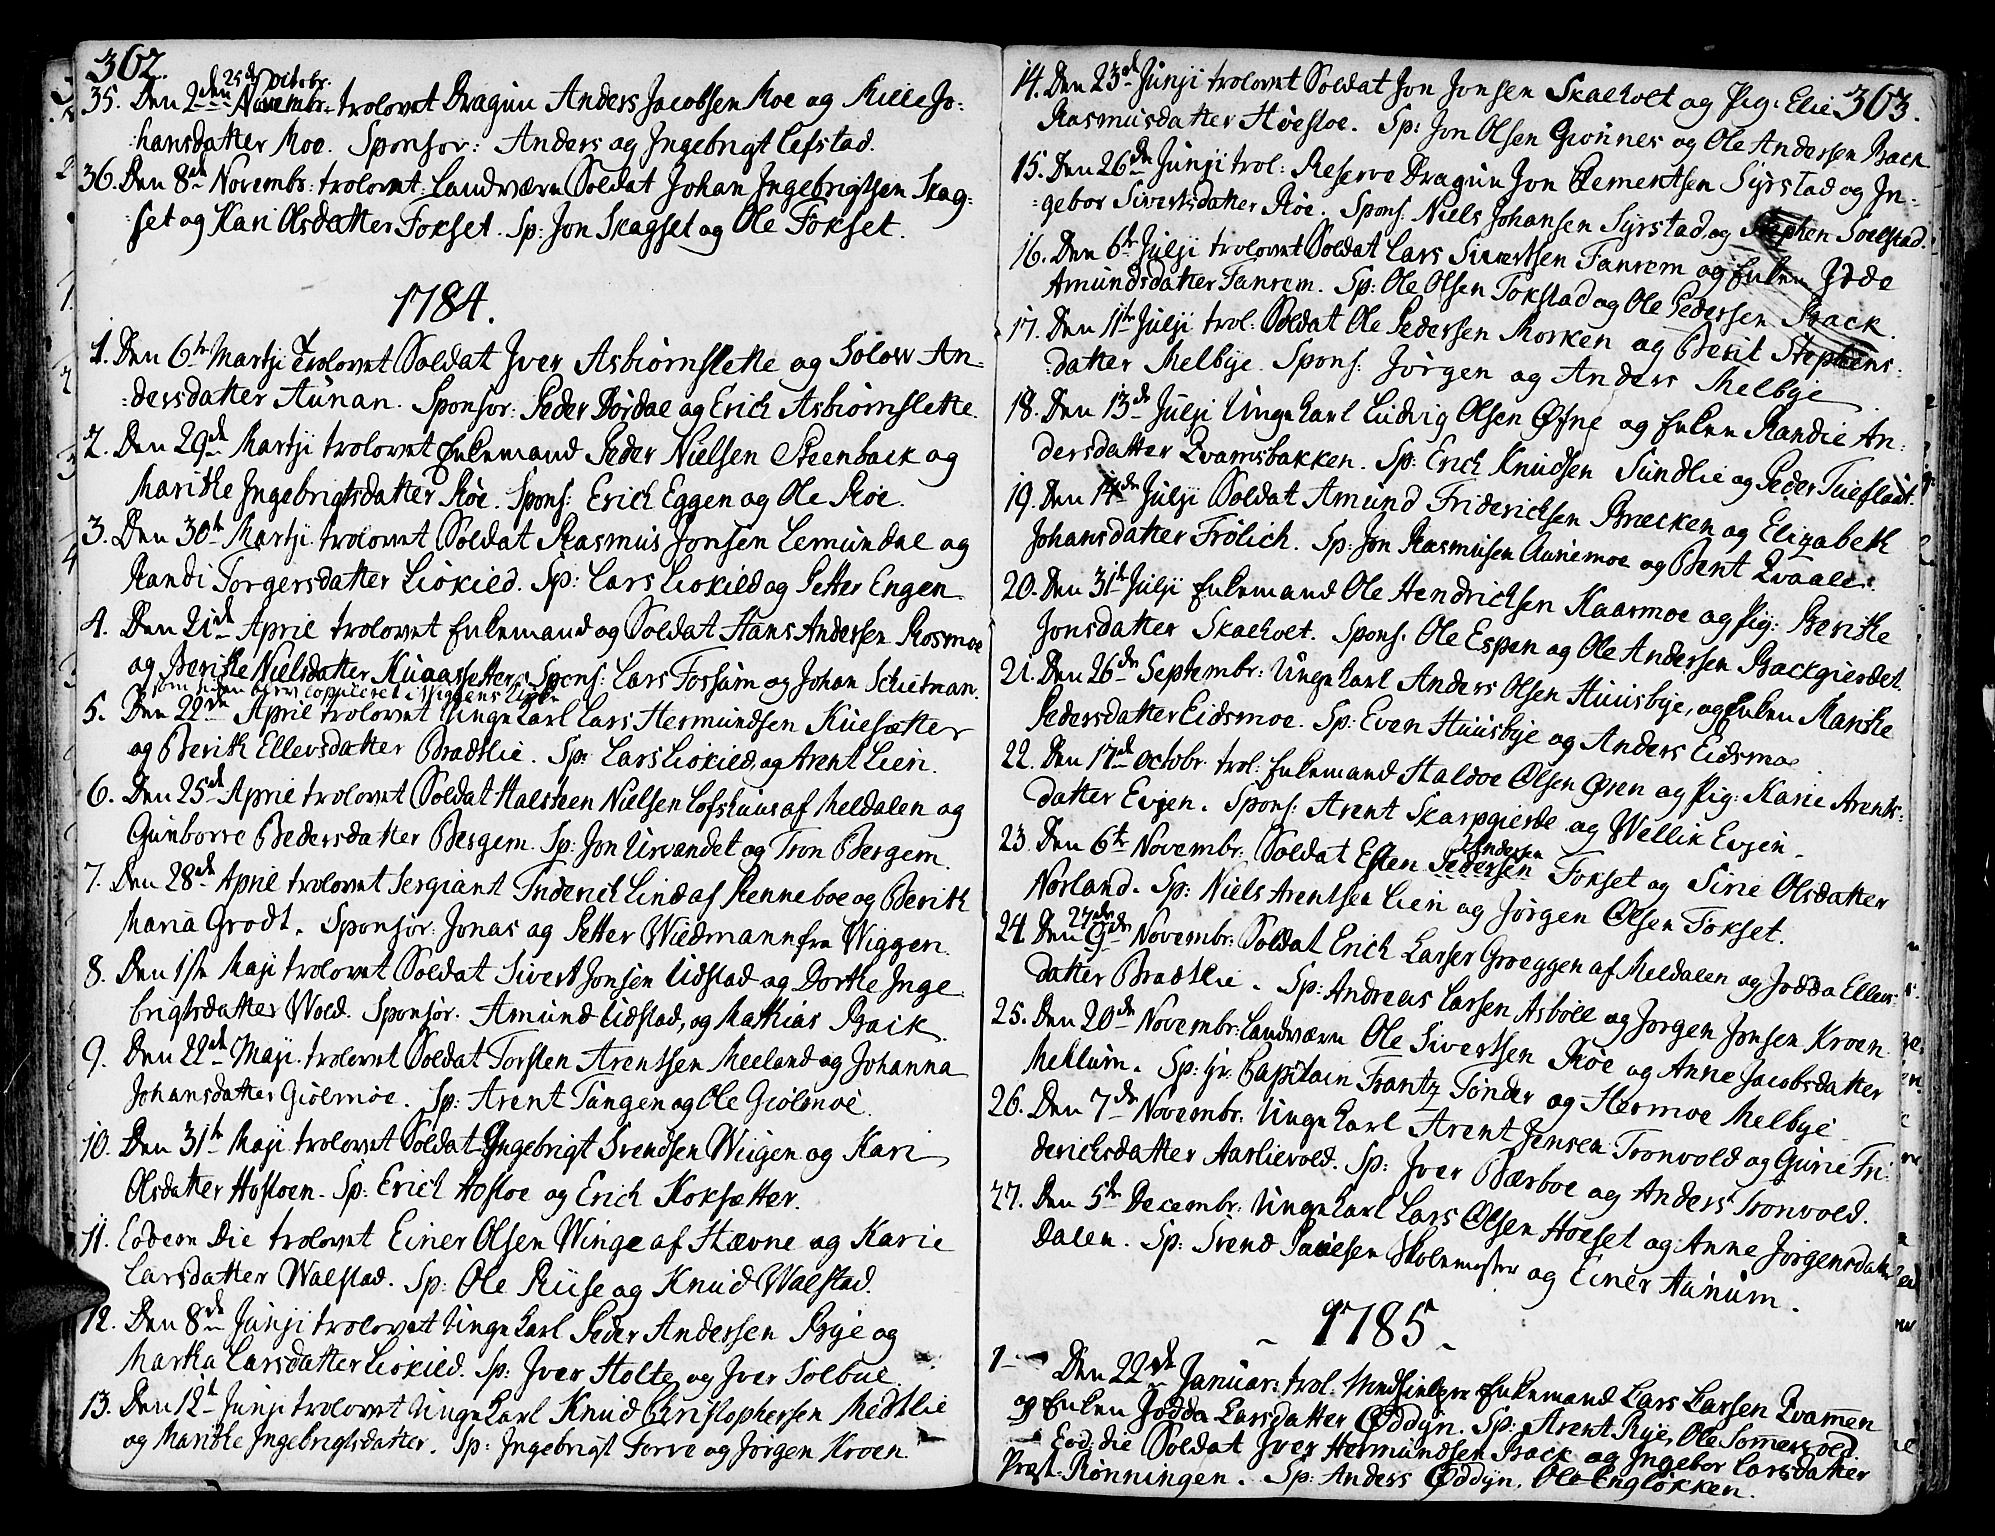 362.
25de Octobr.
35. Den 2den Novembr. trolovet Dragun Anders Jacobsen Moe og Mille Jo:
:hansdatter Moe. Sponsor: Anders og Ingebrigt Lefstad.
36. Den 8de Novembr: trolovet: Landværn Soldat Johan Ingebrigtsen Skag:
:set og Kari Olsdatter Fokset. Sp: Jon Skagset og Ole Fokset.
1784.
1. Den 6te Martji trolovet Soldat Iver Asbiørnslette og Solow An:
:dersdatter Aunan. Sponsor: Peder Dørdal og Erich Asbiørnslette.
2. Den 29de Martji trolovet Enkemand Peder Nielsen Steenback og
Marithe Ingebrigtsdatter Røe. Spons: Erich Eggen og Ole Røe.
3. Den 30te Martji trolovet Soldat Rasmus Jonsen Lemundal og
Randi Torgersdatter Liøkild. Sp: Lars Liøkild og Petter Engen
4. Den 21de April trolovet Enkemand og Soldat Hans Andersen Rosmoe
og Berithe Nielsdatter Kuaassetter. Spons: Lars Fossum og Johan Schutman.
som siden blev copuleret i Viggens Kirke
5. Den 22de April trolovet Ungekarl Lars Hermundsen Kuesætter
og Berith Ellevsdatter Bradtlie. Sp: Lars Liøkild og Arent Lien.
6. Den 25de April trolovet Soldat Halsteen Nielsen Lofshuus af Meldalen og
Gunborre Pedersdatter Bergem. Sp: Jon Urvandet og Tron Bergem.
7. Den 28de April trolovet Sergiant Friderich Lind af Renneboe og Berith
Maria Grodt. Sponsor: Jonas og Petter Widmann fra Wiggen.
8. Den 1ste Maji trolovet Soldat Sivert Jonsen Udstad og Dorthe Inge
brigtsdatter Wold. Sponsor: Amund Udstad, og Mathias Back
9. Den 22de Maji trolovet Soldat Torsten Arentsen Meeland og Johanna
Johansdatter Giølmøe. Sp: Arent Tangen og Ole Giølmoe.
10. Den 31te Maji trolovet Soldat Ingebrigt Svendsen Wiigen og Kari
Olsdatter Hosloen. Sp: Erich Hosloe og Erich Koksætter.
11. Eodem Die trolovet Einer Olsen Winge af Hævne og Karie
Larsdatter Walstad. Sp: Ole Ruse og Knud Walstad.
12. Den 8de Junji trolovet Ungekarl Peder Andersen Bye og
Martha Larsdatter Liøkild. Sp: Iver Holte og Iver Solbue.
13. Den 12te Junji trolovet Ungekarl Knud Christophersen Medtlie
og Marithe Ingebrigtsdatter. Sp: Ingebrigt Forve og Jørgen Kroen.
363.
14. Den 23de Junji trolovet Soldat Jon Jonsen Skaeholt og Pig: Elie
Rasmusdatter Høesloe. Sp: Jon Olsen Grønnes og Ole Andersen Back
15. Den 26de Junji trol: Reserve Dragun Jon Clementsen Syrstad og In:
:gebor Sivertsdatter Røe. Spons: Niels Johansen Syrstad og Stephen Soelstad.
16. Den 6te Julji trolovet Soldat Lars Sivertsen Fanrem og Enken
Amundsdatter Fanrem. Sp: Ole Olsen Fokstad og Ole Pedersen Back.
17. Den 11te Julji trol: Soldat Ole Pedersen Morken og Berit Stephens:
:datter Melbye. Spons: Jørgen og Anders Melbye
18. Den 13de Julji Ungekarl Ludvig Olsen Øfne og Enken Randie An:
dersdatter Qvamsbakken. Sp: Erich Knudsen Sundlie og Peder Tuefladt.
19. Den 14de Julji Soldat Amund Friderichsen Brecken og Elizabeth
Johansdatter Frølich. Sp: Jon Rasmusen Aunemoe og Bent Qvaale.
20. Den 31te Julji Enkemand Ole Hendrichsen Kaarmoe og Pig: Berithe
Jonsdatter Skaeholt. Spons: Ole Espen og Ole Andersen Backgierdet.
21. Den 26de Septembr: Ungekarl Anders Olsen Huusbye, og Enken Marithe
Pedersdatter Eidsmoe. Sp: Even Huusbye og Anders Eidsmoe
22. Den 17de Octobr. trol: Enkemand Haldoe Olsen Øren og Pig: Karie Arents:
datter Evjen. Spons: Arent Skarpgierde og Wellik Evjen.
23. Den 6te Novembr: Soldat Esten Pedersen Fokset og Sirie Olsdatter
Andersen
Norland. Sp: Niels Arentsen Lien og Jørgen Olsen Fokset.
27de
24. Den 9de Novembr: Soldat Erich Larsen Groeggen af Meldalen og Jodda Ellevs:
datter Bradtlie. Sp: Andreas Larsen Asbøll og Jørgen Jonsen Kroen
25. Den 20de Novembr: Landværn Ole Sivertsen Røe og Anne Jacobsdatter
Mehlum. Sp: Hr: Capitain Frantz Tønder og Hermoe Melbye.
26. Den 7de Novembr: Ungekarl Arent Jensen Tronvold og Gurie Fri:
derichsdatter Aarlivold. Sp: Iver Bærboe og Anders Tronvold.
27. Den 5te Decembr: Ungekarl Lars Olsen Hoeset og Anne Jørgensdatter
Dalen. Sp: Svend Paulsen Skolemester og Einer Aunum.
1785
1 Den 22de Januar: trol: Enkemand Lars Larsen Qvammen
og Enken Jodda Larsdatter Oddyn. Sp: Arent Rye, Ole Sommervold.
Eod: die Soldat Iver Hermundsen Back og Ingebor Larsdatter
Præst-Rønningen. Sp: Anders Oddyn, Ole Engløkken.